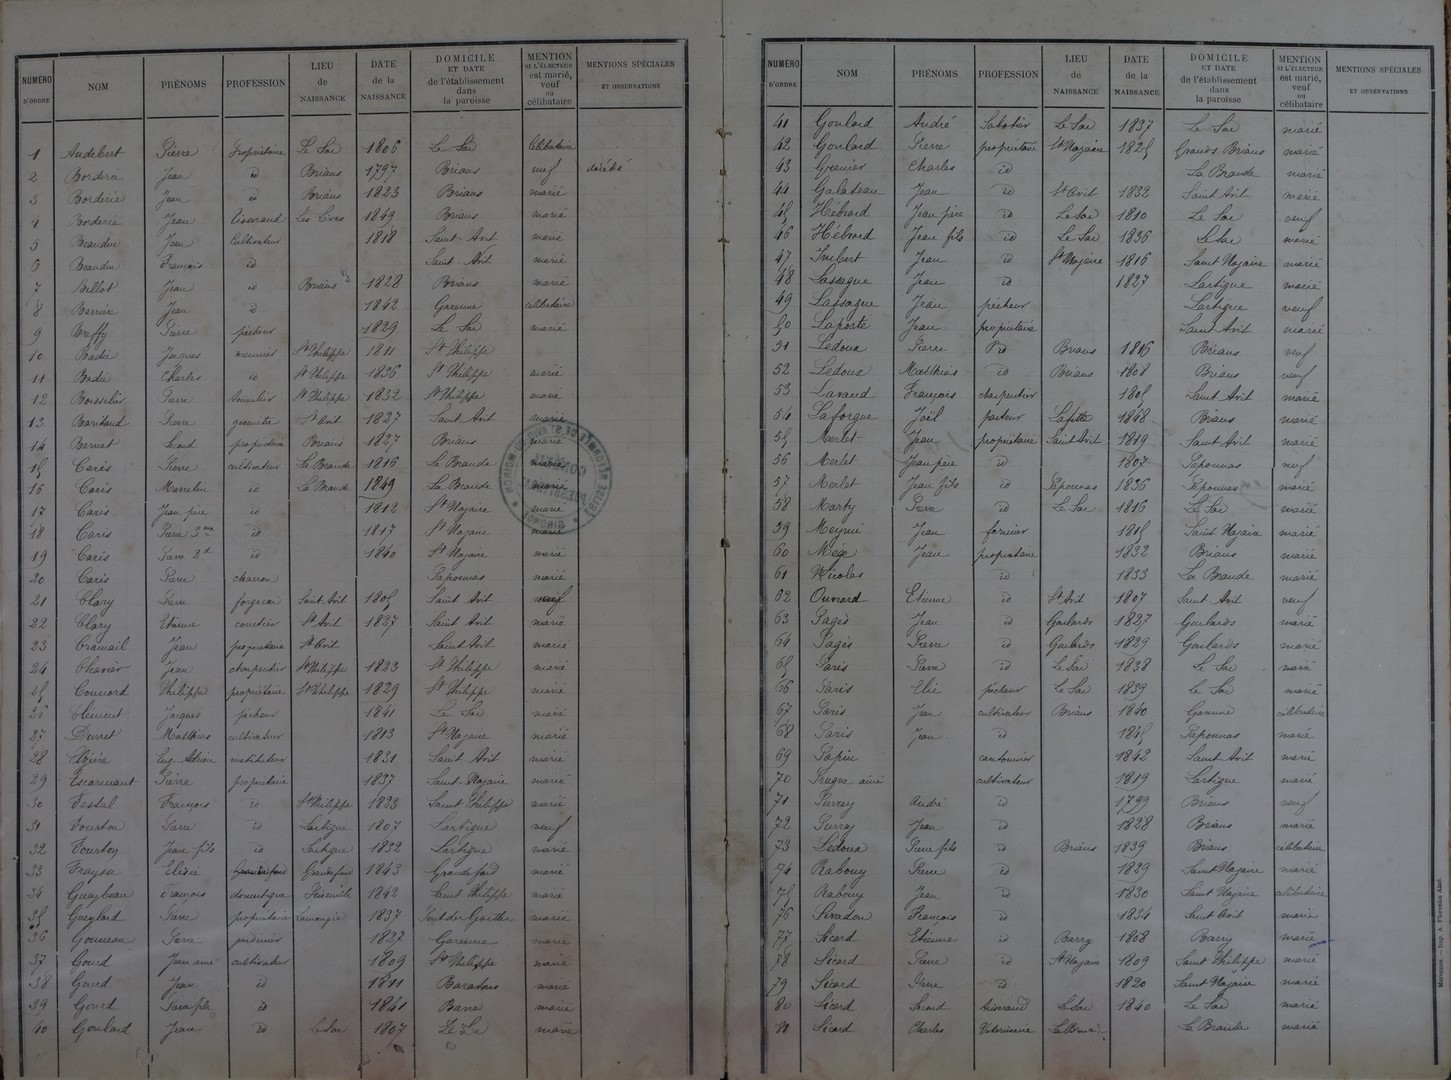 NUMÉRO D'ORDRE NOM PRÉNOMS PROFESSION LIEU de NAISSANCE DATE de la NAISSANCE DOMICILE ET DATE de l'établissement dans la paroisse MENTION SI L'ÉLECTEUR est marié, veuf ou célibataire MENTIONS SPÉCIALES ET OBSERVATIONS
1 Audebert Pierre propriétaire Le Sar 1806 Le Sar célibataire
2 Borderie Jean id Briaus 1797 Briaus veuf décédé
3 Borderie Jean id Briaus 1823 Briaus marié
4 Borderie Jean tisserand Les Lèves 1849 Briaus marié
5 Beaudun Jean Cultivateur 1818 Saint-Avit marié
6 Beaudun François id Saint Avit marié
7 Bellot Jean id Briaus 1828 Briaus marié
8 Jean id 1842 Garenne célibataire
9 Pierre pêcheur 1829 Le Sar marié
10 Jacques meunier St Philippe 1811 St Philippe
11 Charles id St Philippe 1836 St Philippe marié
12 Pierre St Philippe 1832 St Philippe marié
13 Baritaud Pierre St Avit 1827 Saint Avit marié
14 propriétaire Briaus 1827 Briaus marié
15 Carès Pierre cultivateur La Braude 1816 La Braude marié
16 Carès Marcelin id La Braude 1849 La Braude marié
17 Carès Jean père id 1812 St Nazaire marié
18 Carès Pierre id 1817 St Nazaire marié
19 Carès Pierre 2d id 1840 St Nazaire marié
20 Carès Pierre charron Papounas marié
21 Clary Pierre forgeron Saint Avit 1805 Saint Avit veuf
22 Clary Etienne St Avit 1837 Saint Avit marié
23 Jean propriétaire St Avit Saint Avit marié
24 Jean charpentier St Philippe 1823 St Philippe marié
25 Philippe propriétaire St Philippe 1829 St Philippe marié
26 Clément Jacques pêcheur 1841 Le Sar marié
27 Durret Matthias cultivateur 1813 St Nazaire marié
28 Eug. Adrien instituteur 1831 Saint Avit marié
29 Escarmant Pierre propriétaire 1837 Saint Nazaire marié
30 François id St Philippe 1823 Saint Philippe marié
31 Pierre id Lartigue 1807 Lartigue veuf
32 Jean fils id Lartigue 1832 Lartigue marié
33 Fraysse Elisée Grandefond 1843 Grandefond marié
34 François domestique 1842 Saint Philippe marié
35 Pierre propriétaire 1837 marié
36 Pierre jardinier 1827 Garenne marié
37 Gourd Jean ainé cultivateur 1809 St Philippe marié
38 Gourd Jean id 1811 marié
39 Gourd id 1841 Barre marié
40 Goulard Jean id Le Sar 1807 Le Sar marié
ÉGLISE RÉFORMÉE DE ST AVIT DU MOIRON
CONSEIL PRESBYTÉRAL
GIRONDE
NUMÉRO D'ORDRE NOM PRÉNOMS PROFESSION LIEU de NAISSANCE DATE de la NAISSANCE DOMICILE ET DATE de l'établissement dans la paroisse MENTION SI L'ÉLECTEUR est marié, veuf ou célibataire MENTIONS SPÉCIALES ET OBSERVATIONS
41 Goulard André Sabotier Le Sar 1837 Le Sar marié
42 Goulard Pierre propriétaire St Nazaire 1825 Grands Briaus marié
43 Grenier Charles id La Braude marié
44 Galateau Jean id St Avit 1832 Saint Avit marié
45 Hébrard Jean père id Le Sar 1810 Le Sar veuf
46 Hébrard Jean fils id Le Sar 1836 Le Sar marié
47 Imbert Jean id St Nazaire 1816 Saint Nazaire marié
48 Lassagne Jean id 1827 Lartigue marié
49 Lassagne Jean pêcheur Lartigue veuf
50 Laporte Jean propriétaire Saint Avit marié
51 Ledoux Pierre id Briaus 1816 Briaus veuf
52 Ledoux Matthias id Briaus 1808 Briaus veuf
53 Lavaud François charpentier 1805 Saint Avit marié
54 Laforgue Joël pasteur Lafitte 1848 Briaus marié
55 Merlet Jean propriétaire Saint Avit 1819 Saint Avit marié
56 Merlet Jean père id 1807 Papounas veuf
57 Merlet Jean fils id Papounas 1836 Papounas marié
58 Marty Pierre id Le Sar 1816 Le Sar marié
59 Jean fournier 1815 Saint Nazaire marié
60 Mège Jean propriétaire 1832 Briaus marié
61 Nicolas id 1833 La Braude marié
62 Ouvrard Etienne id St Avit 1807 Saint Avit veuf
63 Pagès Jean id Goulards 1827 Goulards marié
64 Pagès Pierre id Goulards 1829 Goulards marié
65 Paris Pierre id Le Sar 1838 Le Sar marié
66 Paris Elie pêcheur Le Sar 1839 Le Sar marié
67 Paris Jean cultivateur Briaus 1840 Garenne célibataire
68 Paris Jean id 1845 Papounas marié
69 Papin cantonnier 1842 Saint Avit marié
70 Prugne ainé cultivateur 1819 Lartigue marié
71 Purrey André id 1799 Briaus veuf
72 Purrey Jean id 1828 Briaus marié
73 Ledoux Pierre fils id Briaus 1839 Briaus célibataire
74 Rabouy Pierre id 1839 Saint Nazaire marié
75 Rabouy Jean id 1830 Saint Nazaire célibataire
76 François id 1834 Saint Avit marié
77 Sicard Etienne id Barry 1808 Barry marié
78 Sicard Pierre id St Nazaire 1809 Saint Philippe marié
79 Sicard Pierre id 1820 Saint Nazaire marié
80 Sicard tisserand Le Sar 1840 Le Sar marié
81 Sicard Charles Vétérinaire La Braude marié
Marmande. — Imp. A. Florentin Aîné.